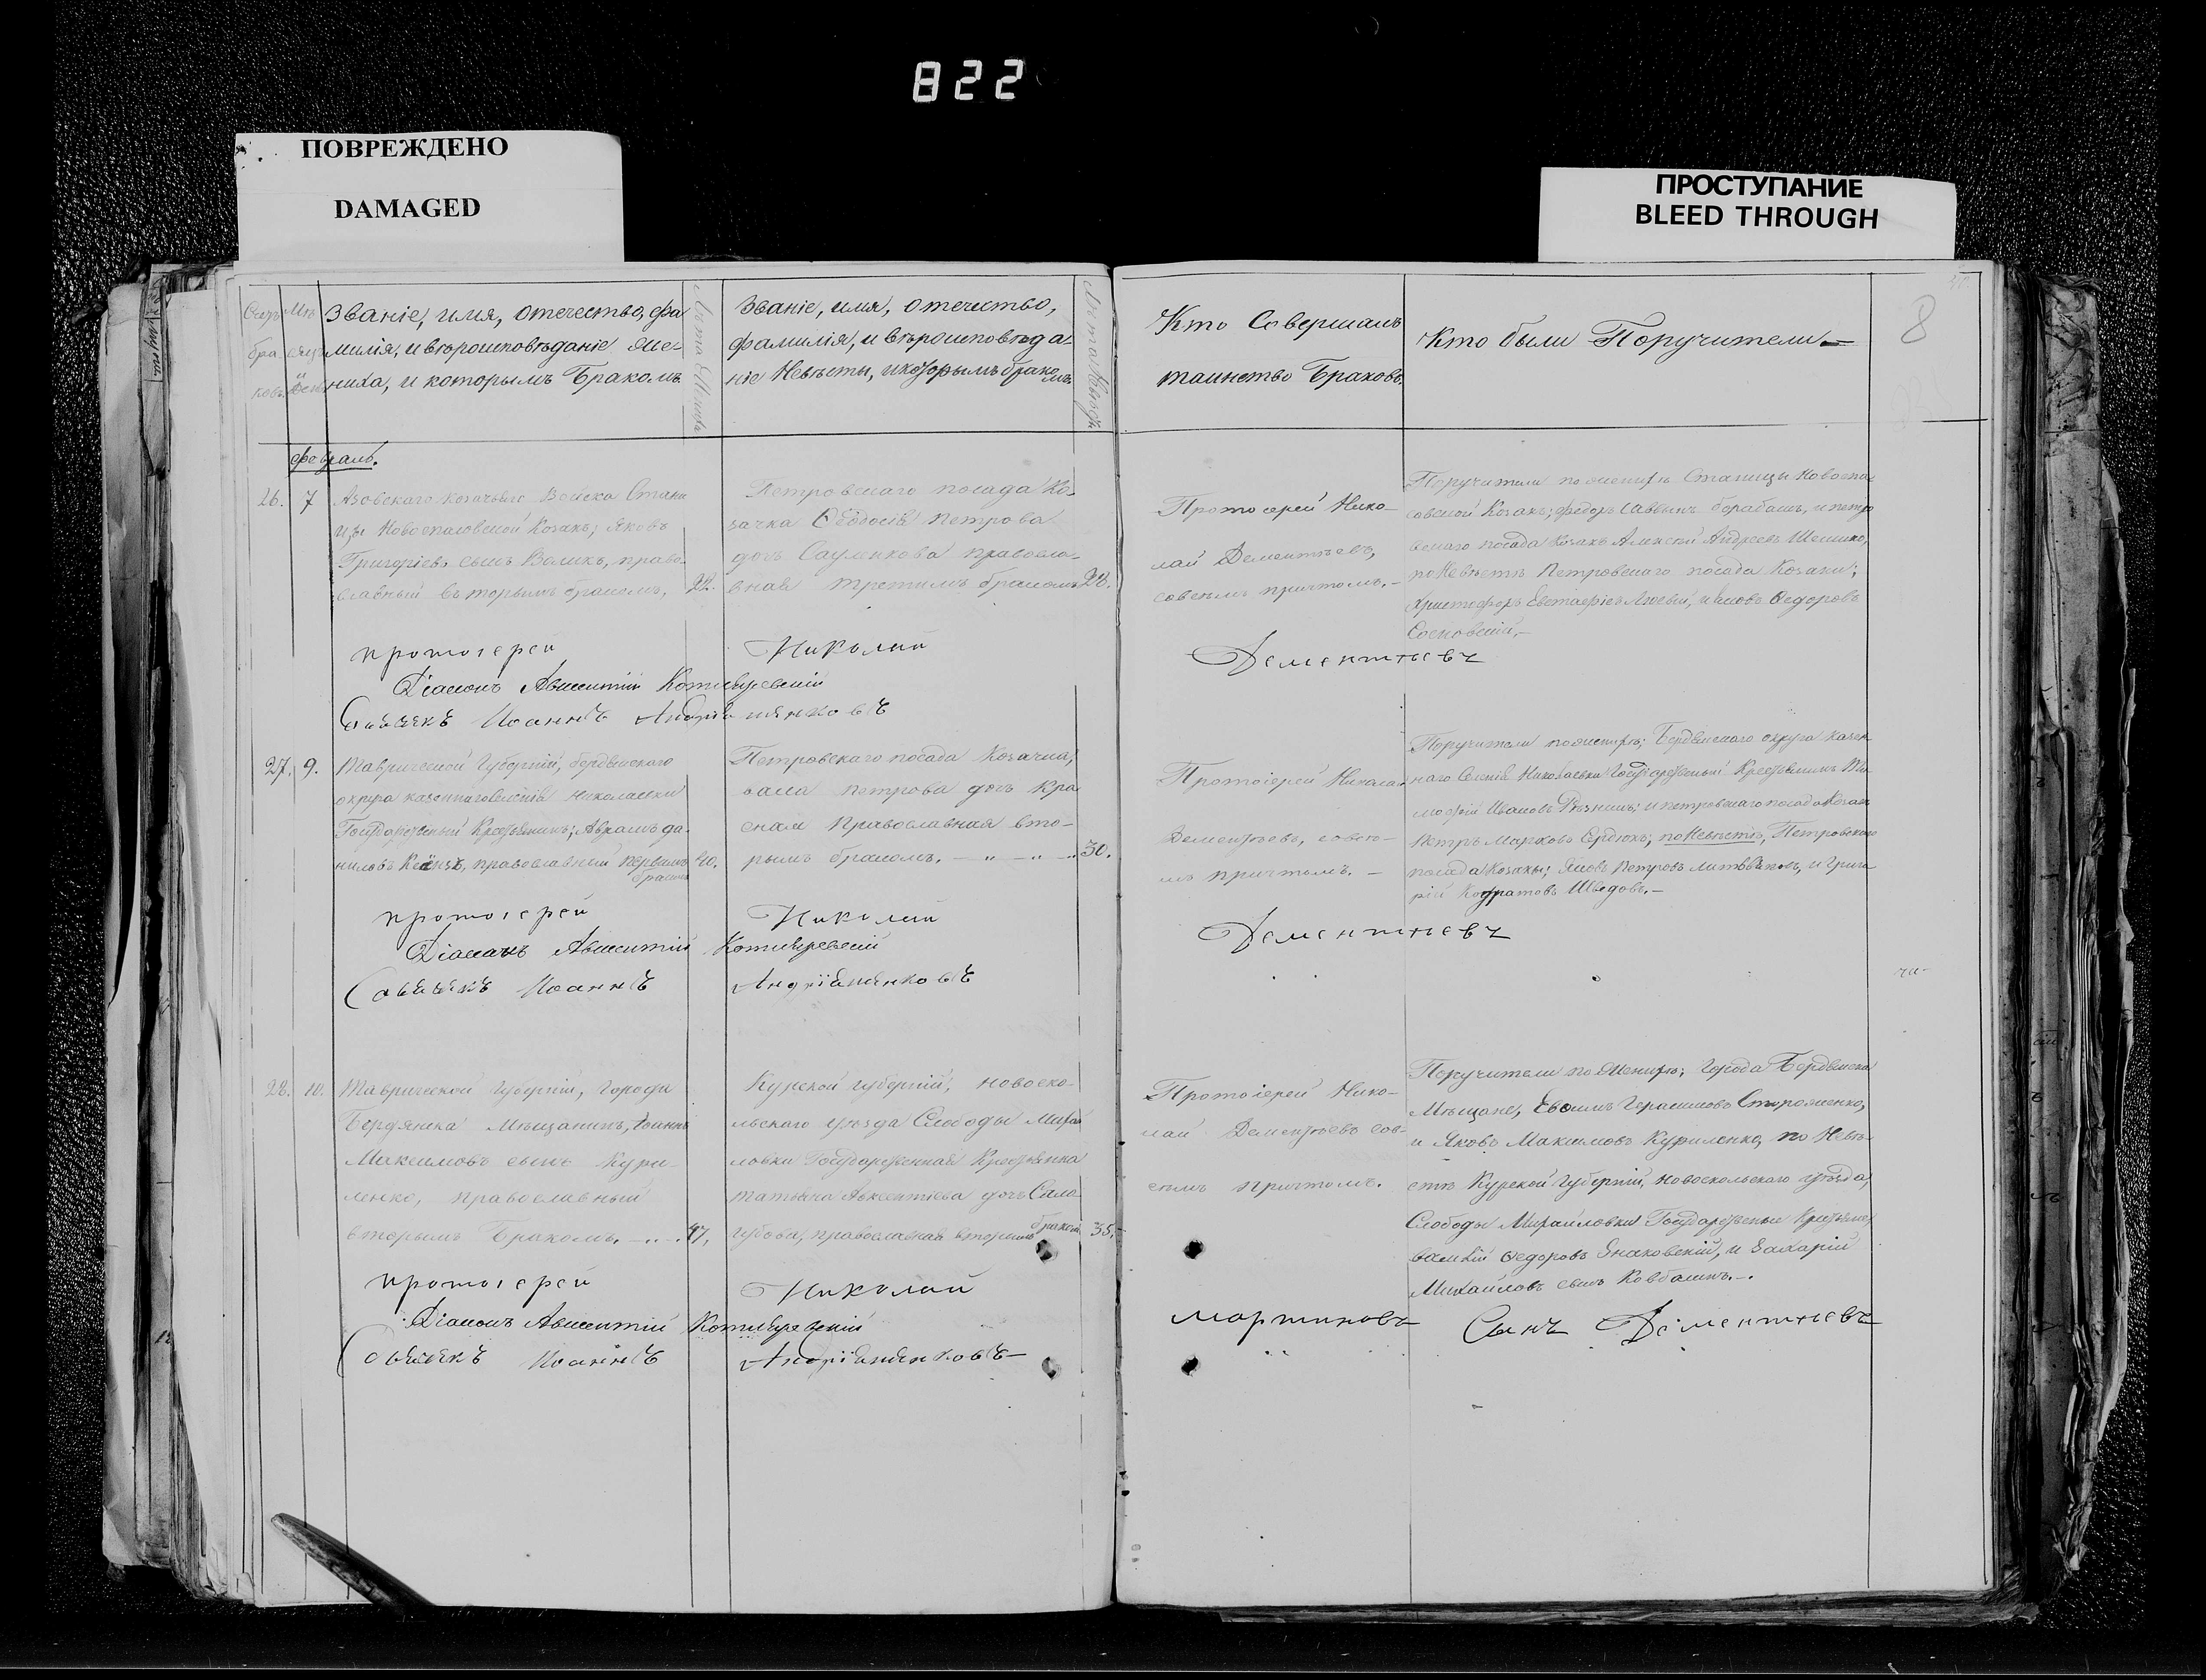 822
ПОВРЕЖДЕНО
DAMAGED
ПРОСТУПАНИЕ
BLEED THROUGH
8
Званіе, имя, отечество, фа
милія, и вѣроисповѣданіе Же-
ниха, и которымъ Бракомъ.
Лѣта Жениха
Званіе, имя, отечество,
фамилія, и вѣроисповѣда-
ніе Невѣсты, и которымъ бракомъ
Лѣта Невѣсты
Кто Совершалъ
таинство Браковъ.
Кто были Поручители
Февраль.
26. 7
Азовскаго козачьяго Войска Стани
цы Новоспасовской Козакъ; Яковъ
Григоріевъ сынъ Воликъ, право-
славный вторымъ бракомъ, 22.
Петровскаго посада Ко-
зачка Феодосія Петрова
дочь Саумкова правосла-
вная третимъ бракомъ 28.
Протоіерей Нико-
лай Дементьевъ,
совсемъ причтомъ.-
Поручители по жениху Станицы Новоспа-
совской Козакъ; Федоръ Саввинъ барабашъ, и петро
вскаго посада Козакъ Алексій Андреевъ
по Невѣстѣ Петровскаго посада Козаки;
Христофоръ Евстафіевъ и Яковъ Федоровъ
Сосновскій,-
протоіерей Николай Дементьевъ
Діаконъ Авксентій Котляревскій
Іоаннъ
27. 9.
Таврической Губерніи, бердянскаго
округа казеннаго селенія Николаевки
Государственный Крестьянинъ; Аврамъ да-
ниловъ православный первымъ 40.
бракомъ
Петровскаго посада Козачка,
петрова дочь Кра
сная Православная вто-
рымъ бракомъ. 30.
Протоіерей Николай
Дементьевъ, совсе-
мъ причтомъ. -
Поручители по жениху; Бердянскаго округа казен
наго селенія Николаевки Государственный Крестьянинъ Ти
мофей Ивановъ и петровскаго посада Козакъ
Петръ Марковъ Сердюкъ; по Невѣстѣ, Петровскаго
посада Козаки; Яковъ Петровъ Литвиновъ, и Григо
рій Кодратовъ Шведовъ.-
протоіерей Николай Дементьевъ
Діаконъ Авксентій Котляревскій
Іоаннъ
28. 10.
Таврической Губерніи, Города
Бердянска Мѣщанинъ, Іоаннъ
Максимовъ сынъ Кури-
ленко, православный
вторымъ Бракомъ. 47,
Курской губерніи, новоско-
льскаго уѣзда Слободы Михай
ловки Государственная Крестьянка
татьяна Авксентіева дочь Само
губова, православная вторымъ бракомъ 35,
Протоіерей Нико-
лай Дементьевъ сов-
семъ причтомъ.
Поручители по Жениху; Города Бердянска
Мѣщане, Евфимъ Герасимовъ Стороженко,
и Яковъ Максимовъ Куриленко, по Невѣ-
стѣ Курской Губерніи, Новоскольскаго уѣзда,
Слободы Михайловки Государственые Крестьяне,
василій Федоровъ и Захарій
Михайловъ сынъ Ковбашнъ.-.
протоіерей Николай Мартиновъ Сынъ Дементьевъ
Діаконъ Авксентій Котляревскій
Іоаннъ